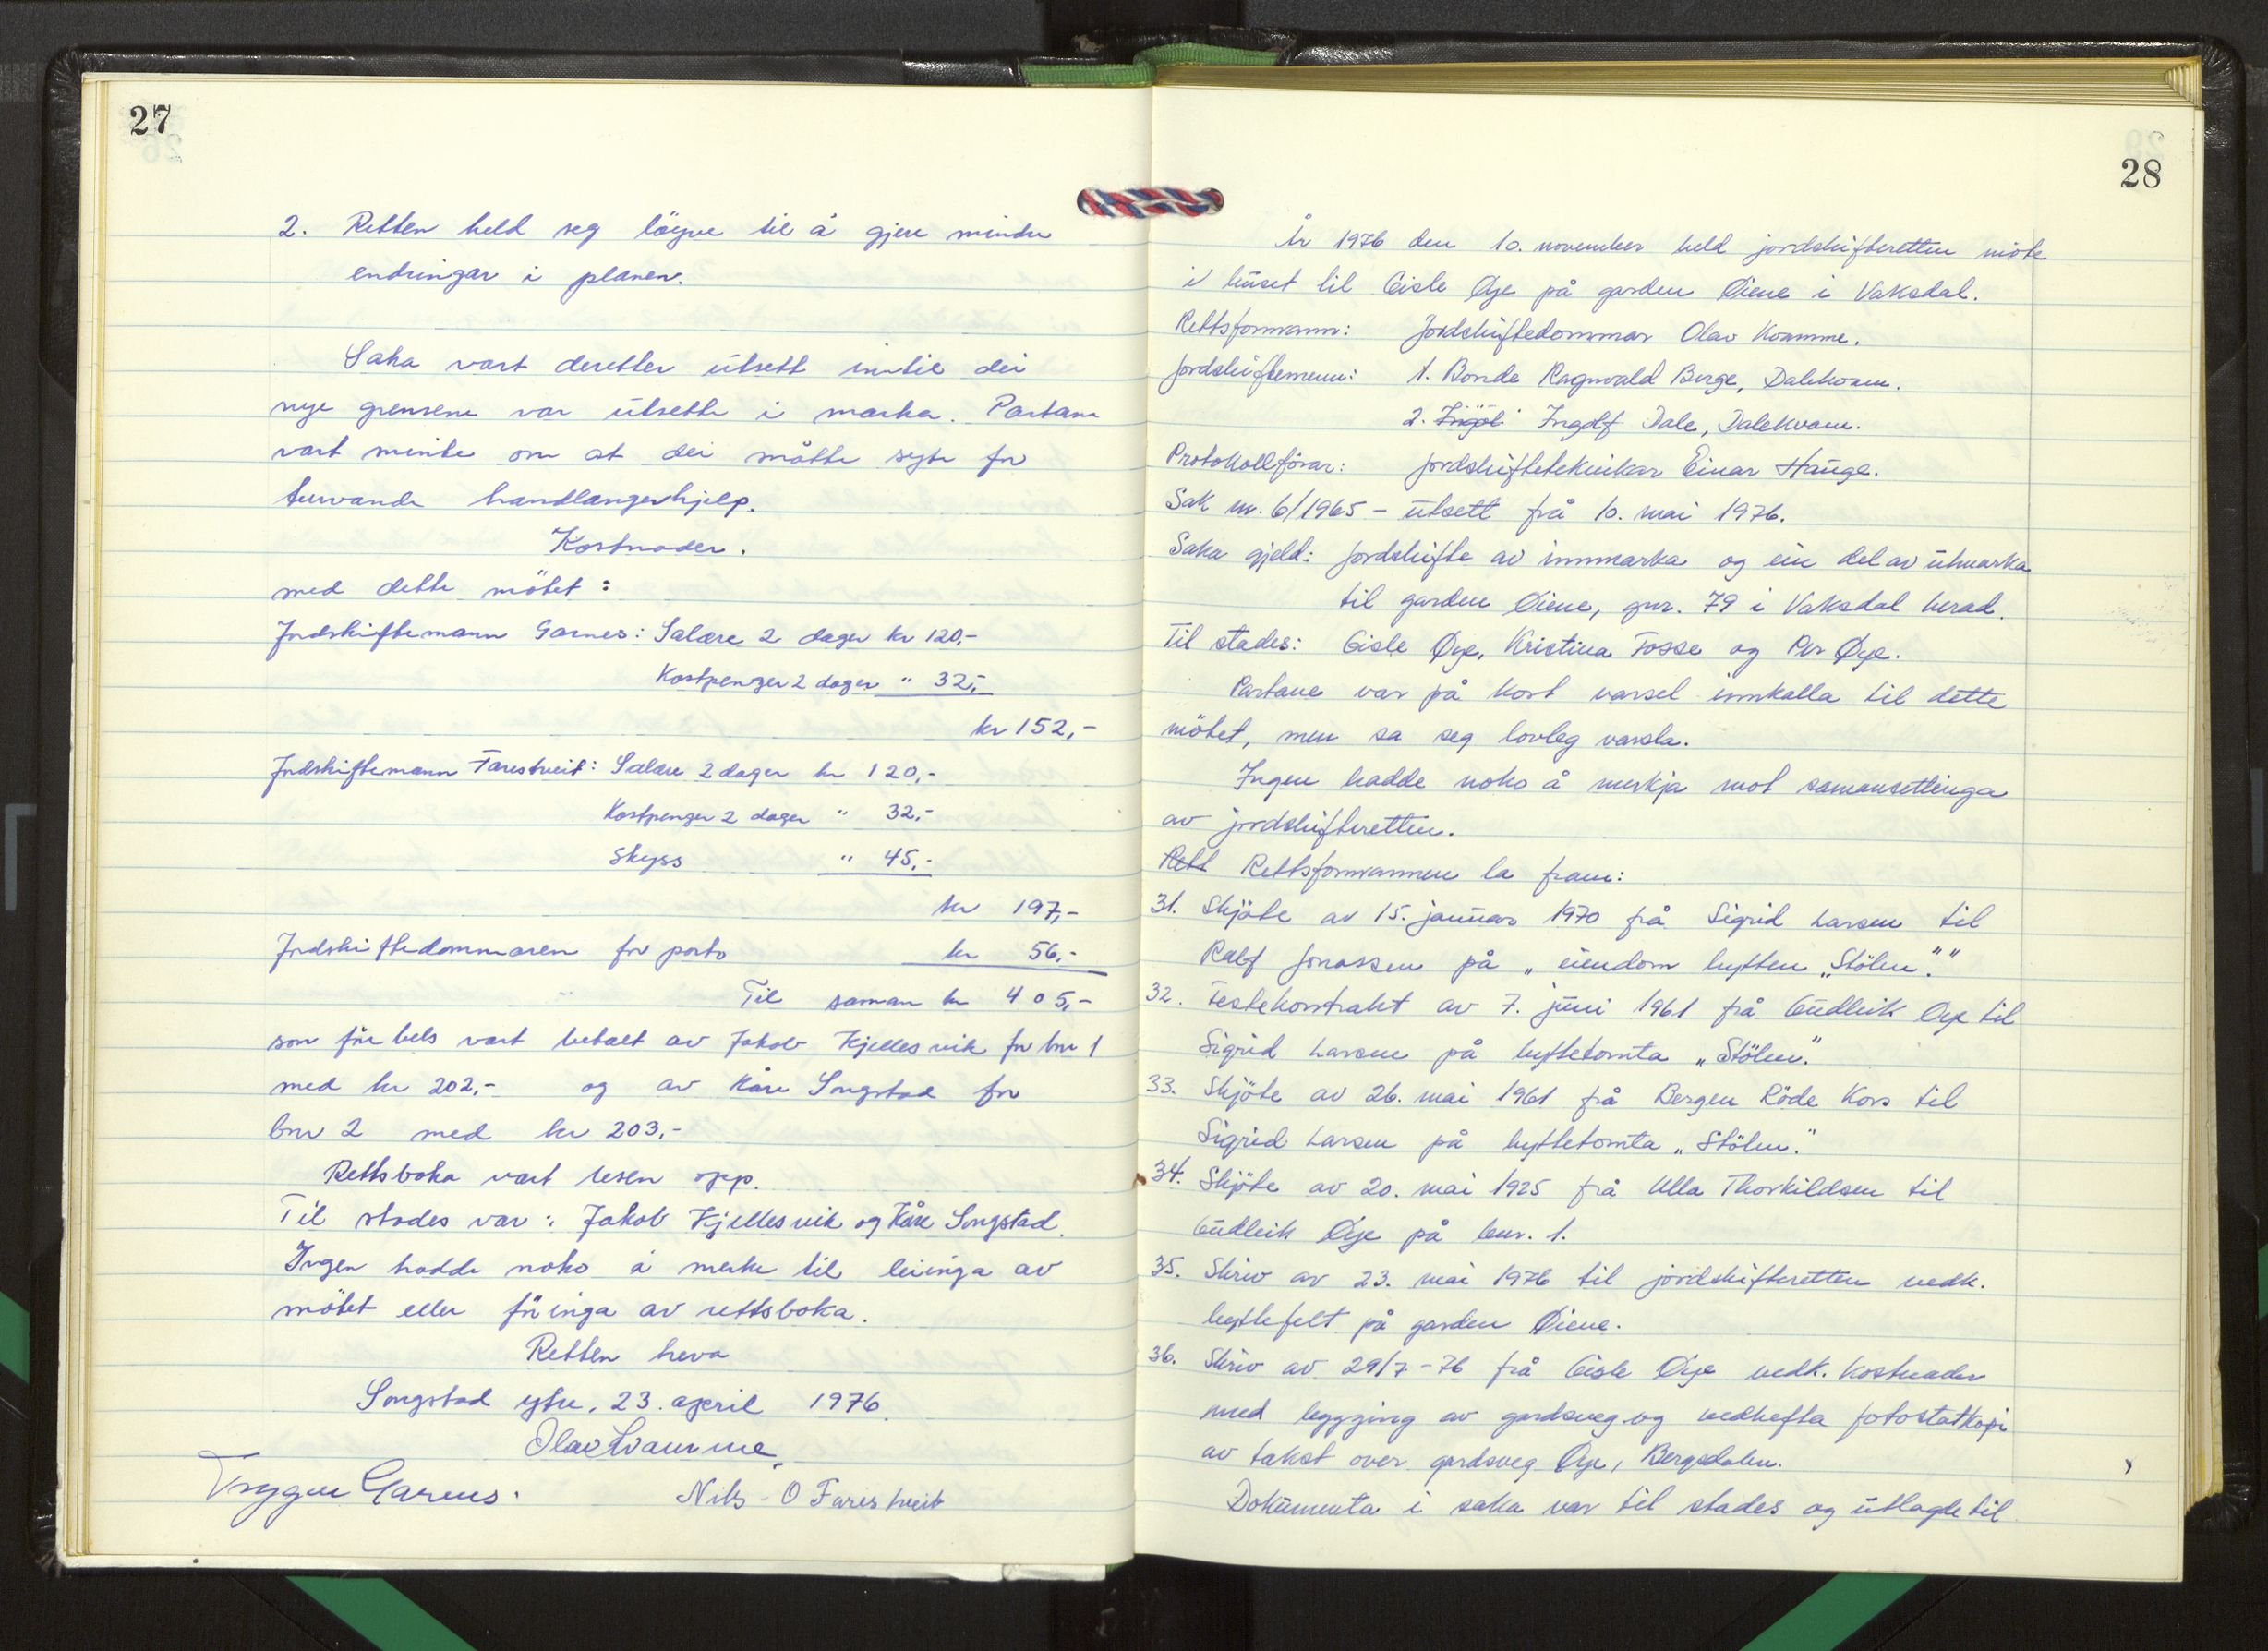 27
2. Retten held seg løyve til å gjere mindre
endringar i planen.
Saka vart deretter utsett inntil dei
nye grensene var utsette i marka. Partane
vart minte om at dei måtte syte for
turvande handlangerhjelp.
Kostnader.
med dette mötet:
Jordskiftemann Garnes: Salære 2 dager kr 120,-
Kostpenger 2 dager " 32,-
kr 152,-
Jordskiftemann Farestveit: Salære 2 dager kr 120,-
Kostpenger 2 dager " 32,-
Skyss " 45,-
kr 197,-
Jordskiftedommaren for porto kr 56,-
Til saman kr 405,-
som vart betalt av Jakob Kjellesvik for bnr 1
med kr 202,- og av Kåre Songstad for
bnr 2 med kr 203,-
Rettsboka vart lesen opp.
Til stades var: Jakob Kjellesvik og Kåre Songstad.
Ingen hadde noko å merke til leiinga av
mötet eller föringa av rettsboka.
Retten heva
Songstad ytre, 23. april 1976.
Olav Kvamme
Trygve Garnes. Nils O Farestveit
28
År 1976 den 10. november held jordskifteretten möte
i huset til Gisle Øye på garden Øiene i Vaksdal.
Rettsformann: Jordskiftedommar Olav Kvamme.
Jordskiftemenn: 1. Bonde Ragnvald Berge, Dalekvam.
2. Ingolf Dale, Dalekvam.
Protokollförar: Jordskifteteknikar Einar Hauge.
Sak nr. 6/1965 - utsett frå 10. mai 1976.
Saka gjeld: Jordskifte av innmarka og ein del av utmarka
til garden Øiene, gnr. 79 i Vaksdal herad.
Til stades: Gisle Øye, Kristina Fosse og Per Øye.
Partane var på kort varsel innkalla til dette
mötet, men sa seg lovleg varsla.
Ingen hadde noko å merkja mot samansettinga
av jordskifteretten.
Rett Rettsformannen la fram:
31. Skjöte av 15. januar 1970 frå Sigrid Larsen til
Ralf Jonassen på „eiendom hytten „Stölen"."
32. Festekontrakt av 7. juni 1961 frå Gudleik Øye til
Sigrid Larsen på hyttetomta „Stölen".
33. Skjöte av 26. mai 1961 frå Bergen Röde Kors til
Sigrid Larsen på hyttetomta „Stölen".
34. Skjöte av 20. mai 1925 frå Ulla Thorkildsen til
Gudleik Øye på bnr. 1.
35. Skriv av 23. mai 1976 til jordskifteretten vedk.
hyttefelt på garden Øiene.
36. Skriv av 29/7-76 frå Gisle Øye vedk. kostnader
med leggging av gardsveg og vedhefta fotostatkopi
av takst over gardsveg Øye, Bergsdalen.
Dokumenta i saka var til stades og utlagde til